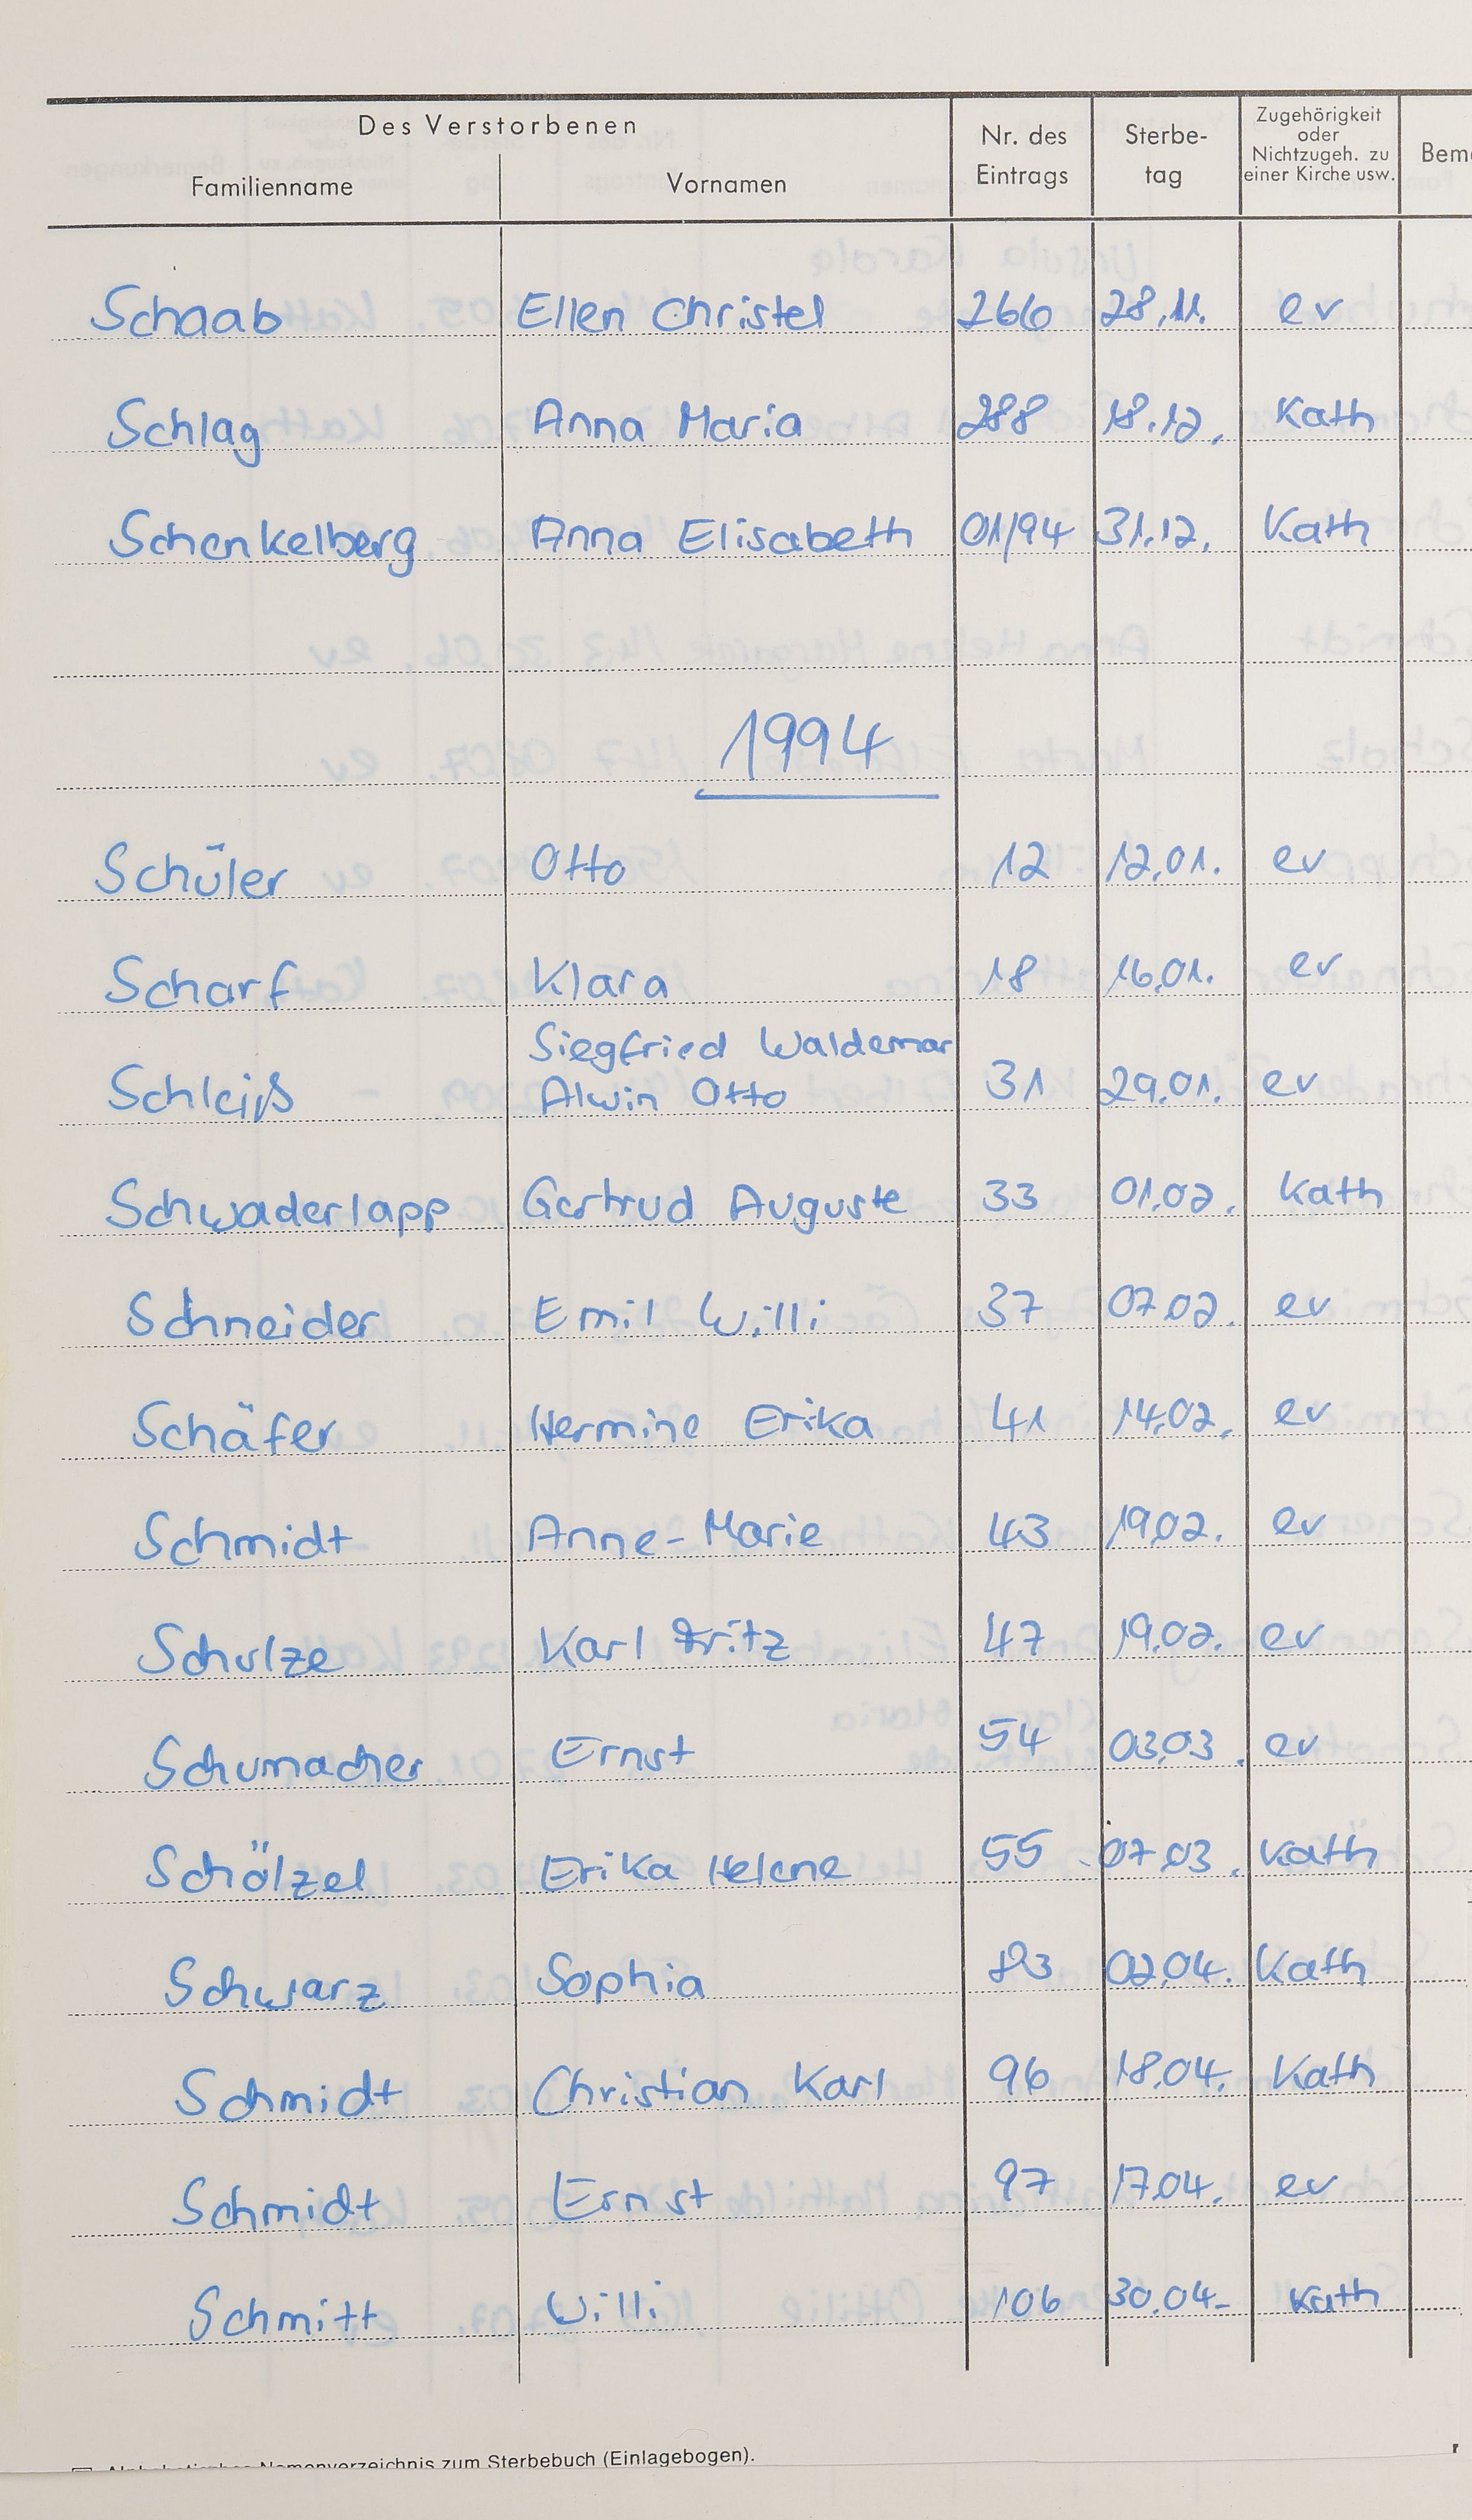 Des Verstorbenen
Familienname Vornamen Nr. des Eintrags Sterbe-tag Zugehörigkeit oder Nichtzugeh. zu einer Kirche usw.
Schaab Ellen Christel 266 28.11. ev
Schlag Anna Maria 288 18.12. Kath
Schenkelberg Anna Elisabeth 01/94 31.12. Kath
1994
Schüler Otto 12 12.01. ev
Scharf Klara 18 16.01. ev
Siegfried Waldemar
Schleiß Alwin Otto 31 29.01. ev
Schwaderlapp Gertrud Auguste 33 01.02. Kath
Schneider Emil Willi 37 07.02. ev
Schäfer Hermine Erika 41 14.02. ev
Schmidt Anne-Marie 43 19.02. ev
Schulze Karl Fritz 47 19.02. ev
Schumacher Ernst 54 03.03. ev
Schölzel Erika Helene 55 07.03. Kath
Schwarz Sophia 83 02.04. Kath
Schmidt Christian Karl 96 18.04. Kath
Schmidt Ernst 97 17.04. ev
Schmitt Willi 106 30.04- Kath
Namenverzeichnis zum Sterbebuch (Einlagebogen).